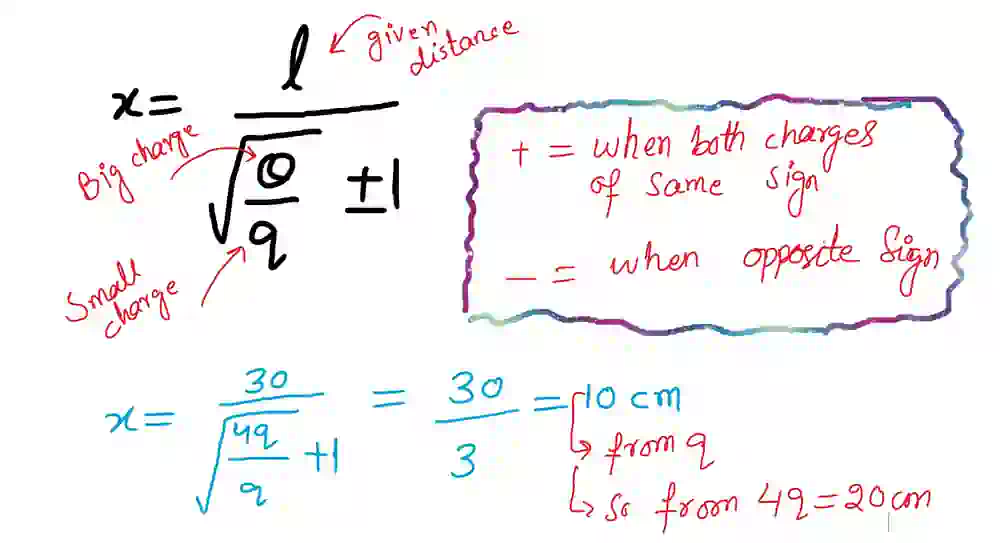 x = l / √(Q/q) ± 1
given distance
Big charge
Small charge
+ = when both charges
of same sign
— = when opposite Sign
x = 30 / √(4q/q) + 1 = 30/3 = 10 cm
↳ from q
↳ so from 4q = 20cm